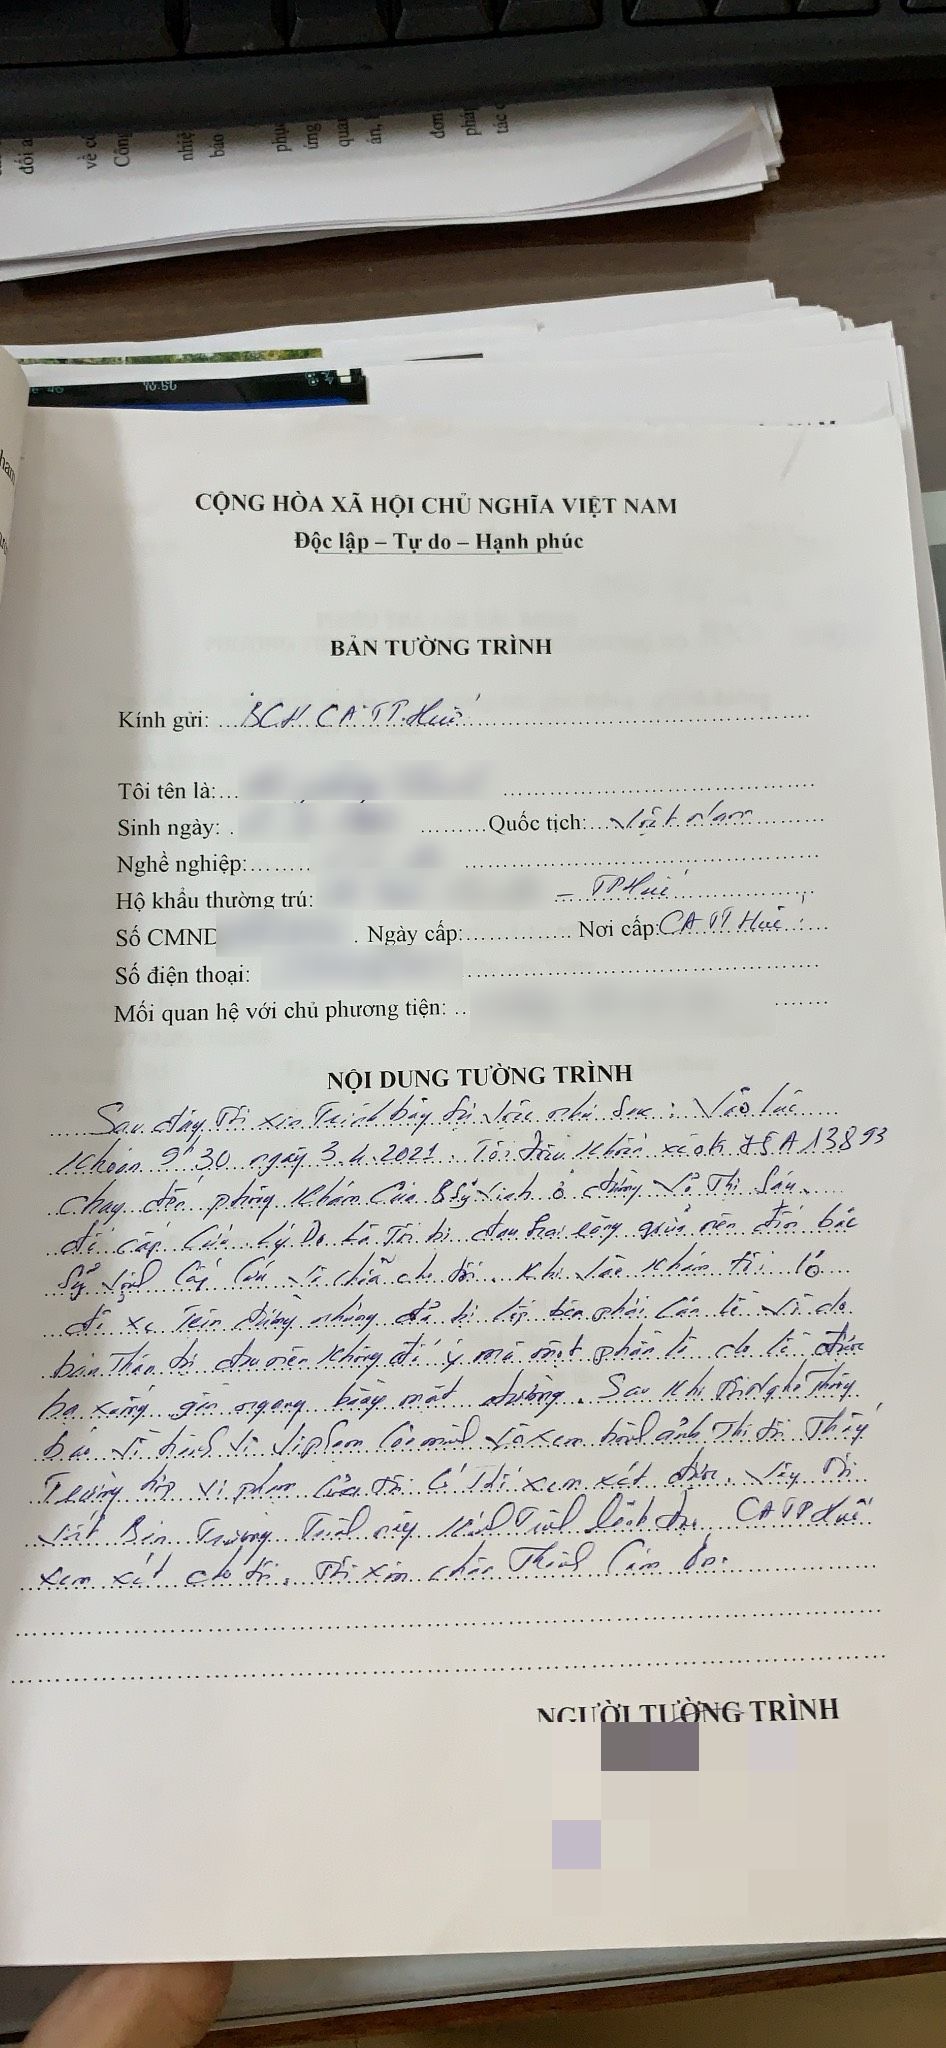 đối a
về cơ
Côn
nhiệ
báo
phụ
ứng
qua
án,
đơn
phá
tác
CỘNG HÒA XÃ HỘI CHỦ NGHĨA VIỆT NAM
Độc lập – Tự do – Hạnh phúc
BẢN TƯỜNG TRÌNH
Kính gửi: BCH CA TP. Huế
Tôi tên là:
Sinh ngày: Quốc tịch: Việt Nam
Nghề nghiệp:
Hộ khẩu thường trú: – TP Huế
Số CMND Ngày cấp: Nơi cấp: CA TT Huế
Số điện thoại:
Mối quan hệ với chủ phương tiện:
NỘI DUNG TƯỜNG TRÌNH
Sau đây tôi xin trình bày sự việc như sau: Vào lúc
khoản 9h30 ngày 3.4.2021. Tôi điều khiển xe ôtô 75A 13893
chạy đến phòng khám của Bsỹ Vinh ở đường Võ Thị Sáu
để cấp cứu. Lý do là tôi bị đau răng quá nên đến bác
sỹ Vinh cấp cứu và chữa cho tôi. Khi vào khám tôi có
để xe trên đường nhưng đã bị lốp bên phải lên lề và do
bản thân tôi đau nên không để ý mà một phần lề do lề được
hạ xuống gần ngang bằng mặt đường. Sau khi tôi nghe thông
báo về hành vi vi phạm của mình và xem hình ảnh thì tôi thấy
trường hợp vi phạm của tôi có thể xem xét được. Vậy tôi
viết Bản Tường Trình này kính trình lãnh đạo CATP Huế
xem xét cho tôi. Tôi xin chân thành cảm ơn.
NGƯỜI TƯỜNG TRÌNH